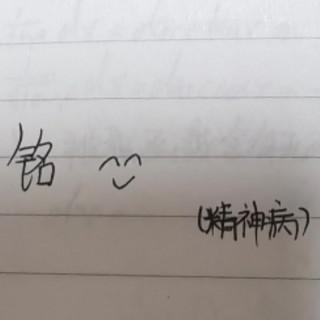 铭
(精神病)